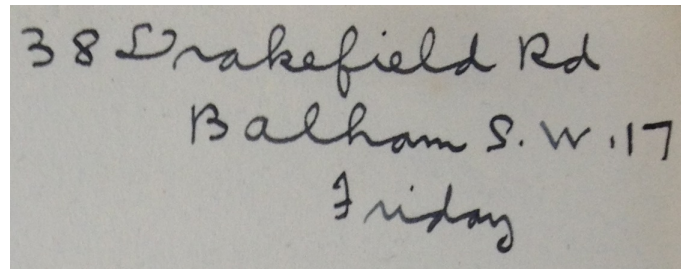 38 Drakefield Rd
Balham S.W.17
Friday